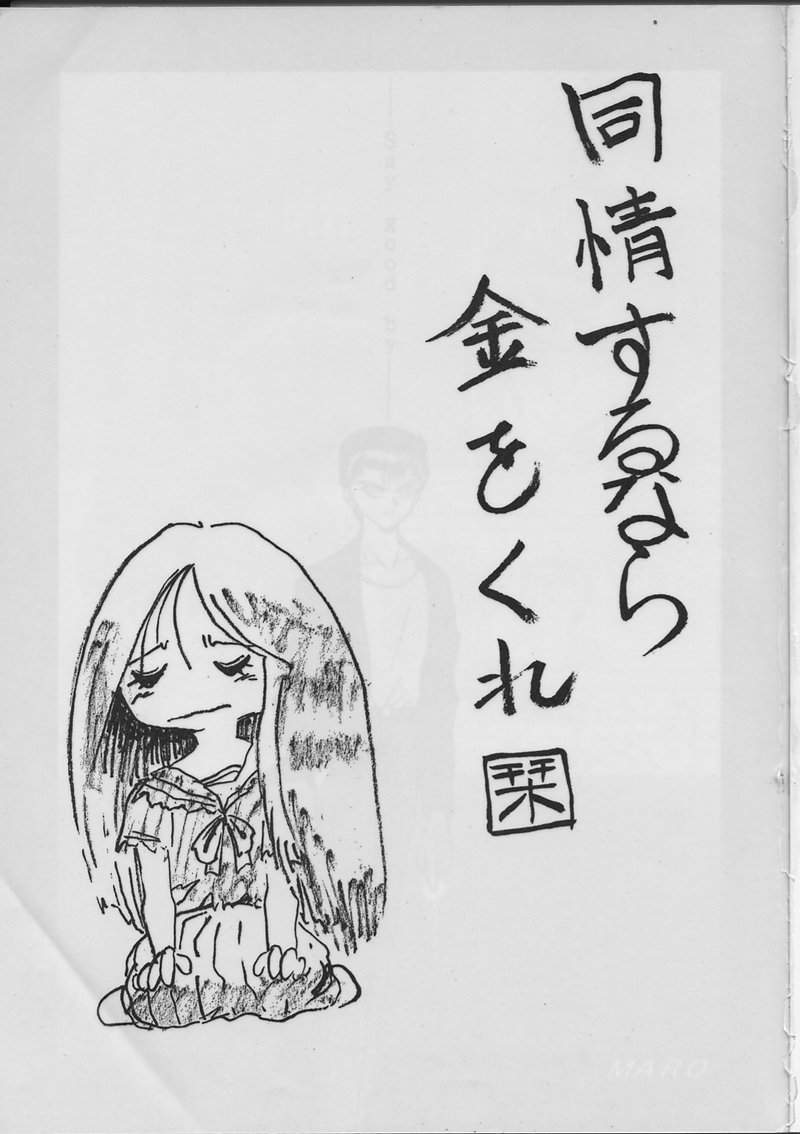 同情するなら
金をくれ
栞
MARO